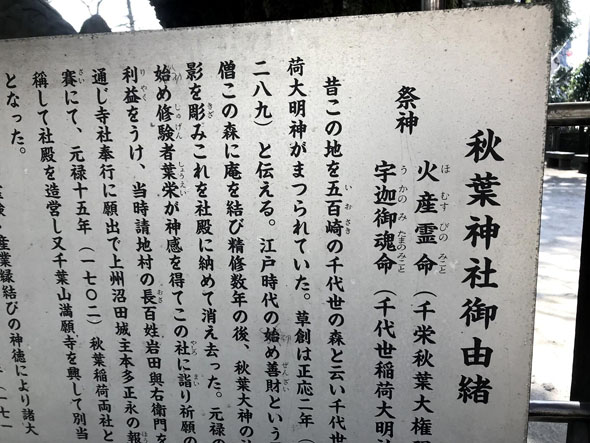 秋葉神社御由緒
祭神 火産霊命(千栄秋葉大権
宇迦御魂命(千代世稲荷大明
昔この地を五百崎の千代世の森と云い千代世
荷大明神がまつられていた。草創は正応二年(
二八九)と伝える。江戸時代の始め善財という
僧この森に庵を結び精修数年の後、秋葉大神の
影を彫みこれを社殿に納めて消え去った。元禄の
始め修験者葉栄が神感を得てこの社に詣り祈願の
利益をうけ、当時請地村の長百姓岩田與右衛門を
通じ寺社奉行に願出で上州沼田城主本多正永の報
賽にて、元禄十五年(一七〇二)秋葉稲荷両社と
稱して社殿を造営し又千葉山満願寺を興して別当
となった。
産業縁結びの神徳により諸大